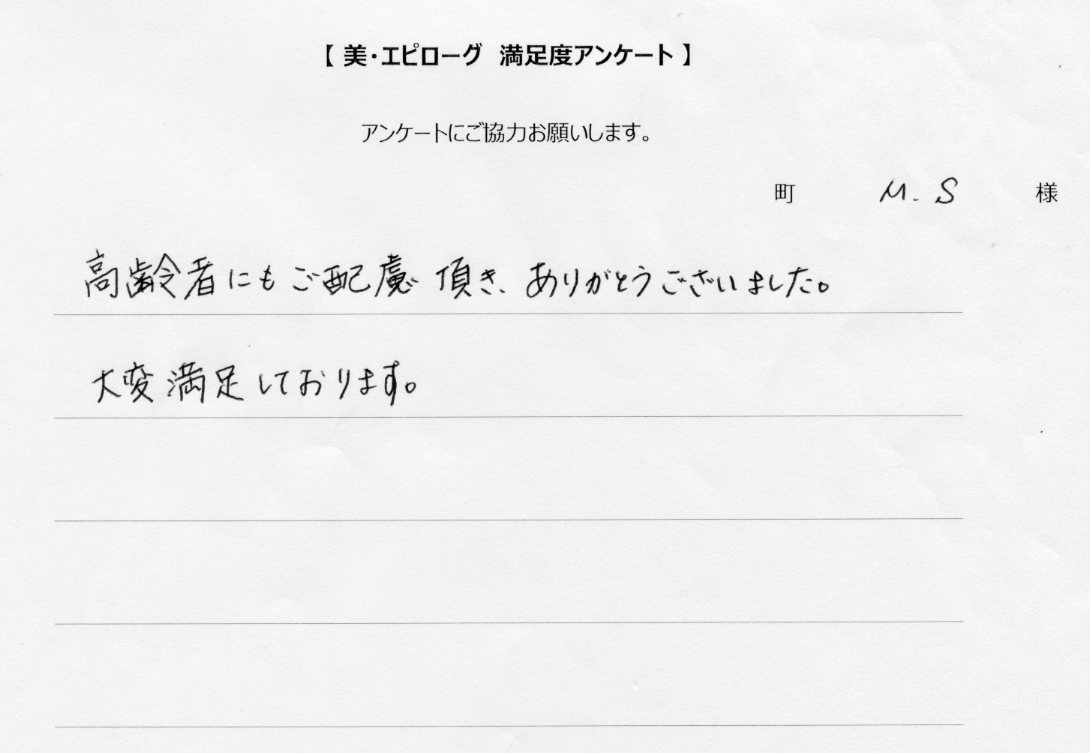 【 美・エピローグ 満足度アンケート 】
アンケートにご協力お願いします。
町 M.S 様
高齢者にもご配慮頂き、ありがとうございました。
大変満足しております。